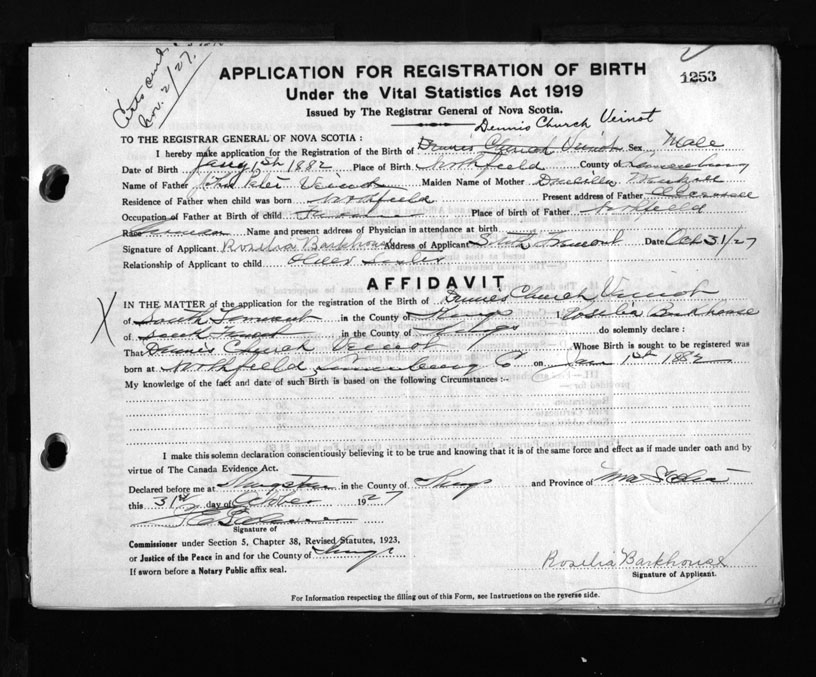 Nov. 2/27.
1253
APPLICATION FOR REGISTRATION OF BIRTH
Under the Vital Statistics Act 1919
Issued by The Registrar General of Nova Scotia.
Dennis Church Veinot
TO THE REGISTRAR GENERAL OF NOVA SCOTIA :
I hereby make application for the Registration of the Birth of Dennis Church Veinot Sex Male
Date of Birth Jany 1st 1882 Place of Birth Northfield County of Lunenburg
Name of Father Peter Veinot Maiden Name of Mother Drucilla
Residence of Father when child was born Northfield Present address of Father Deceased
Occupation of Father at Birth of child Farmer Place of birth of Father Northfield
Race German Name and present address of Physician in attendance at birth
Signature of Applicant Rosilia Barkhouse Address of Applicant South Tremont Date Oct 31/27
Relationship of Applicant to child Older Sister
AFFIDAVIT
IN THE MATTER of the application for the registration of the Birth of Dennis Church Veinot
of South Tremont in the County of Kings I Rosilia Barkhouse
of South Tremont in the County of Kings do solemnly declare :
That Dennis Church Veinot Whose Birth is sought to be registered was
born at Northfield Lunenburg Co on Jan 1st 1882
My knowledge of the fact and date of such Birth is based on the following Circumstances :--
I make this solemn declaration conscientiously believing it to be true and knowing that it is of the same force and effect as if made under oath and by
virtue of The Canada Evidence Act.
Declared before me at Kingston in the County of Kings and Province of Nova Scotia
this 31st day of October 1927
Signature of
Commissioner under Section 5, Chapter 38, Revised Statutes, 1923,
or Justice of the Peace in and for the County of Kings
If sworn before a Notary Public affix seal.
Rosilia Barkhouse
Signature of Applicant.
For Information respecting the filling out of this Form, see Instructions on the reverse side.